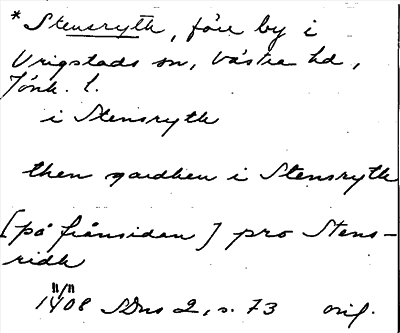 *Stensryth, förr by i
Vrigstads sn, Västra hd,
Jönk. l.
i Stensryth
then gardhen i Stensryth
[på frånsidan] pro Stens-
ridh
11/11
1408 SDns 2, s. 73 orig.